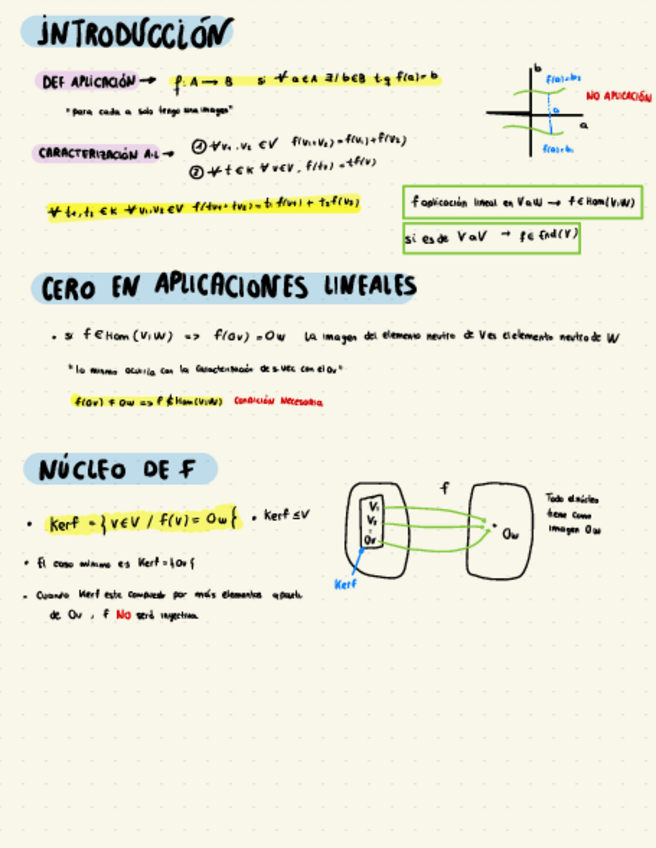 INTRODUCCIÓN
DEF APLICACIÓN → f: A → B si ∀ a ∈ A ∃! b ∈ B t.q f(a) = b
"para cada a solo tengo una imagen"
b
f(a)=b₂
NO APLICACIÓN
a
a
f(a)=b₁
CARACTERIZACIÓN A.L → ① ∀ v₁, v₂ ∈ V f(v₁+v₂) = f(v₁)+f(v₂)
② ∀ t ∈ K ∀ v ∈ V, f(tv) = t f(v)
∀ t₁, t₂ ∈ K ∀ v₁, v₂ ∈ V f(tv₁+tv₂) = t₁ f(v₁) + t₂ f(v₂)
f aplicación lineal en V a W → f ∈ Hom(V,W)
si es de V a V → f ∈ End(V)
CERO EN APLICACIONES LINEALES
• si f ∈ Hom (V,W) => f(0v) = 0w La imagen del elemento neutro de V es el elemento neutro de W
"lo mismo ocurría con la caracterización de s.vec con el 0v"
f(0v) ≠ 0w => f ∉ Hom(V,W) CONDICIÓN NECESARIA
NÚCLEO DE F
• Kerf = { v ∈ V / f(v) = 0w } • Kerf ≤ V
• El caso mínimo es Kerf = {0v}
• Cuando Kerf este compuesto por más elementos aparte
de 0v, f NO será inyectiva
f
V₁
V₂
0v
0w
Kerf
Todo el núcleo
tiene como
imagen 0w